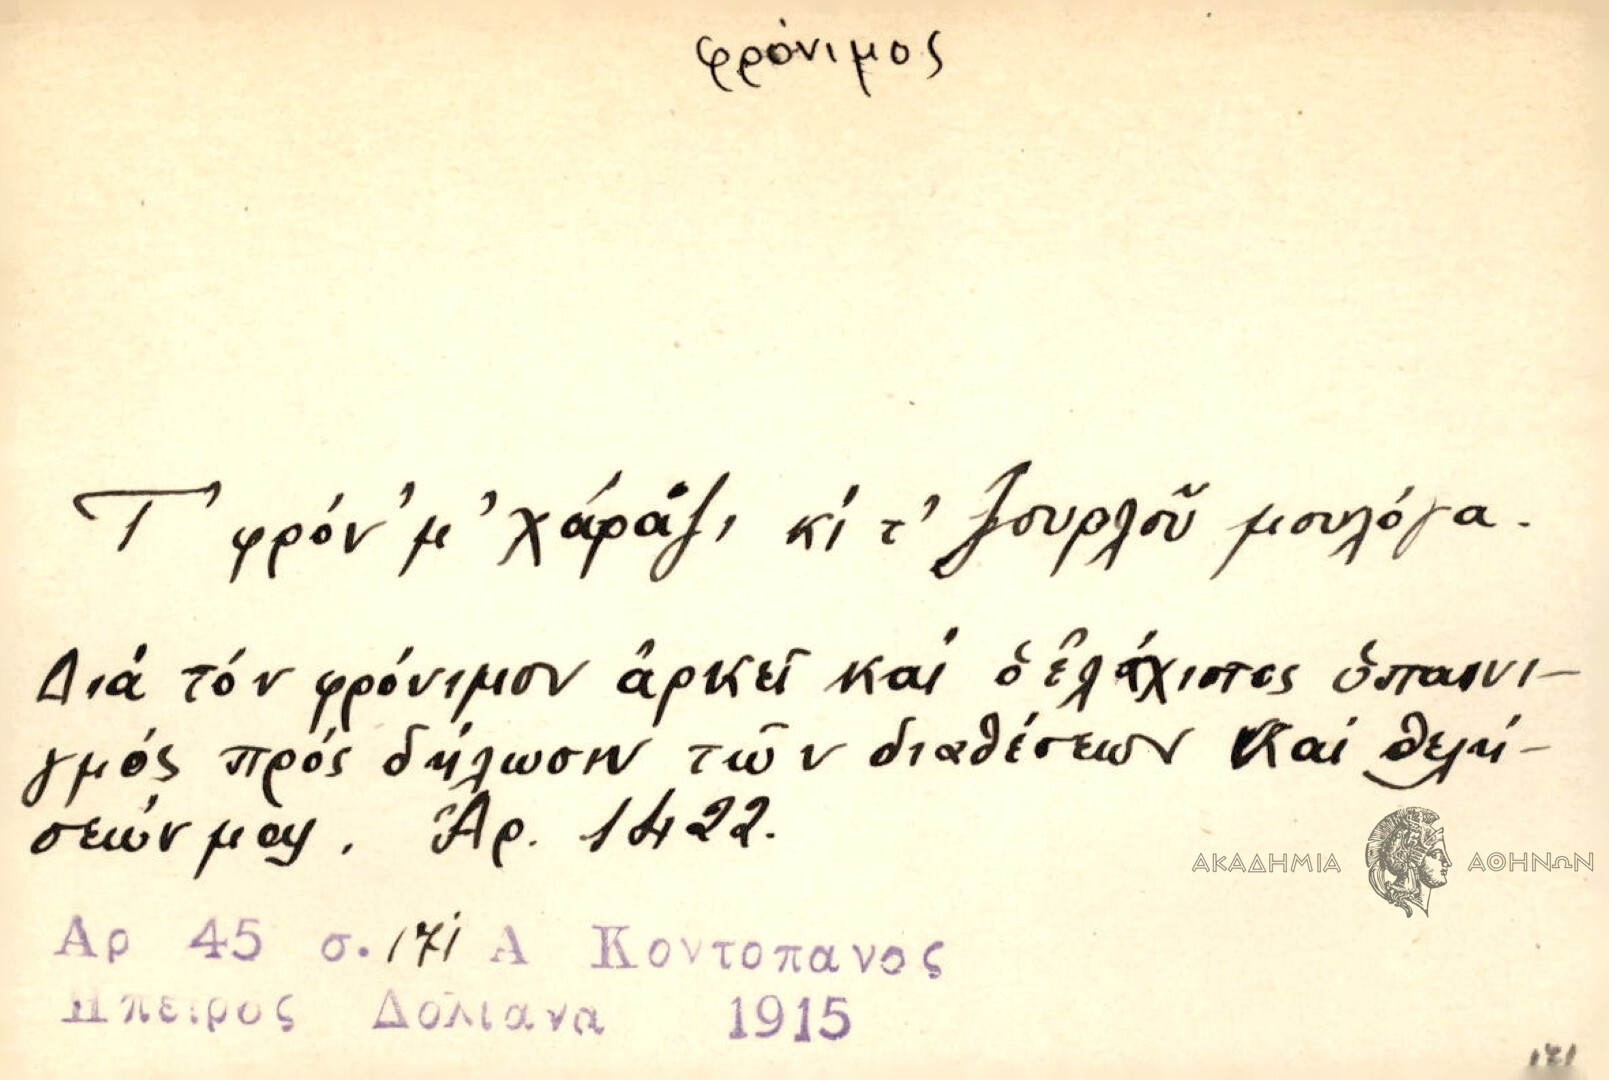 φρόνιμος
Τ' φρόν'μ' χάραζι κὶ τ' ζουρλοῦ μουλόγα.
Διὰ τόν φρόνιμον ἀρκεῖ καὶ ὁ ἐλάχιστος ὑπαινι-
γμός πρός δήλωσιν τῶν διαθέσεων καὶ θελή-
σεών μας. Ἀρ. 1422.
ΑΚΑΔΗΜΙΑ ΑΘΗΝΩΝ
Αρ 45 σ. 171 Α Κοντοπανος
Ηπειρος Δολιανα 1915
171